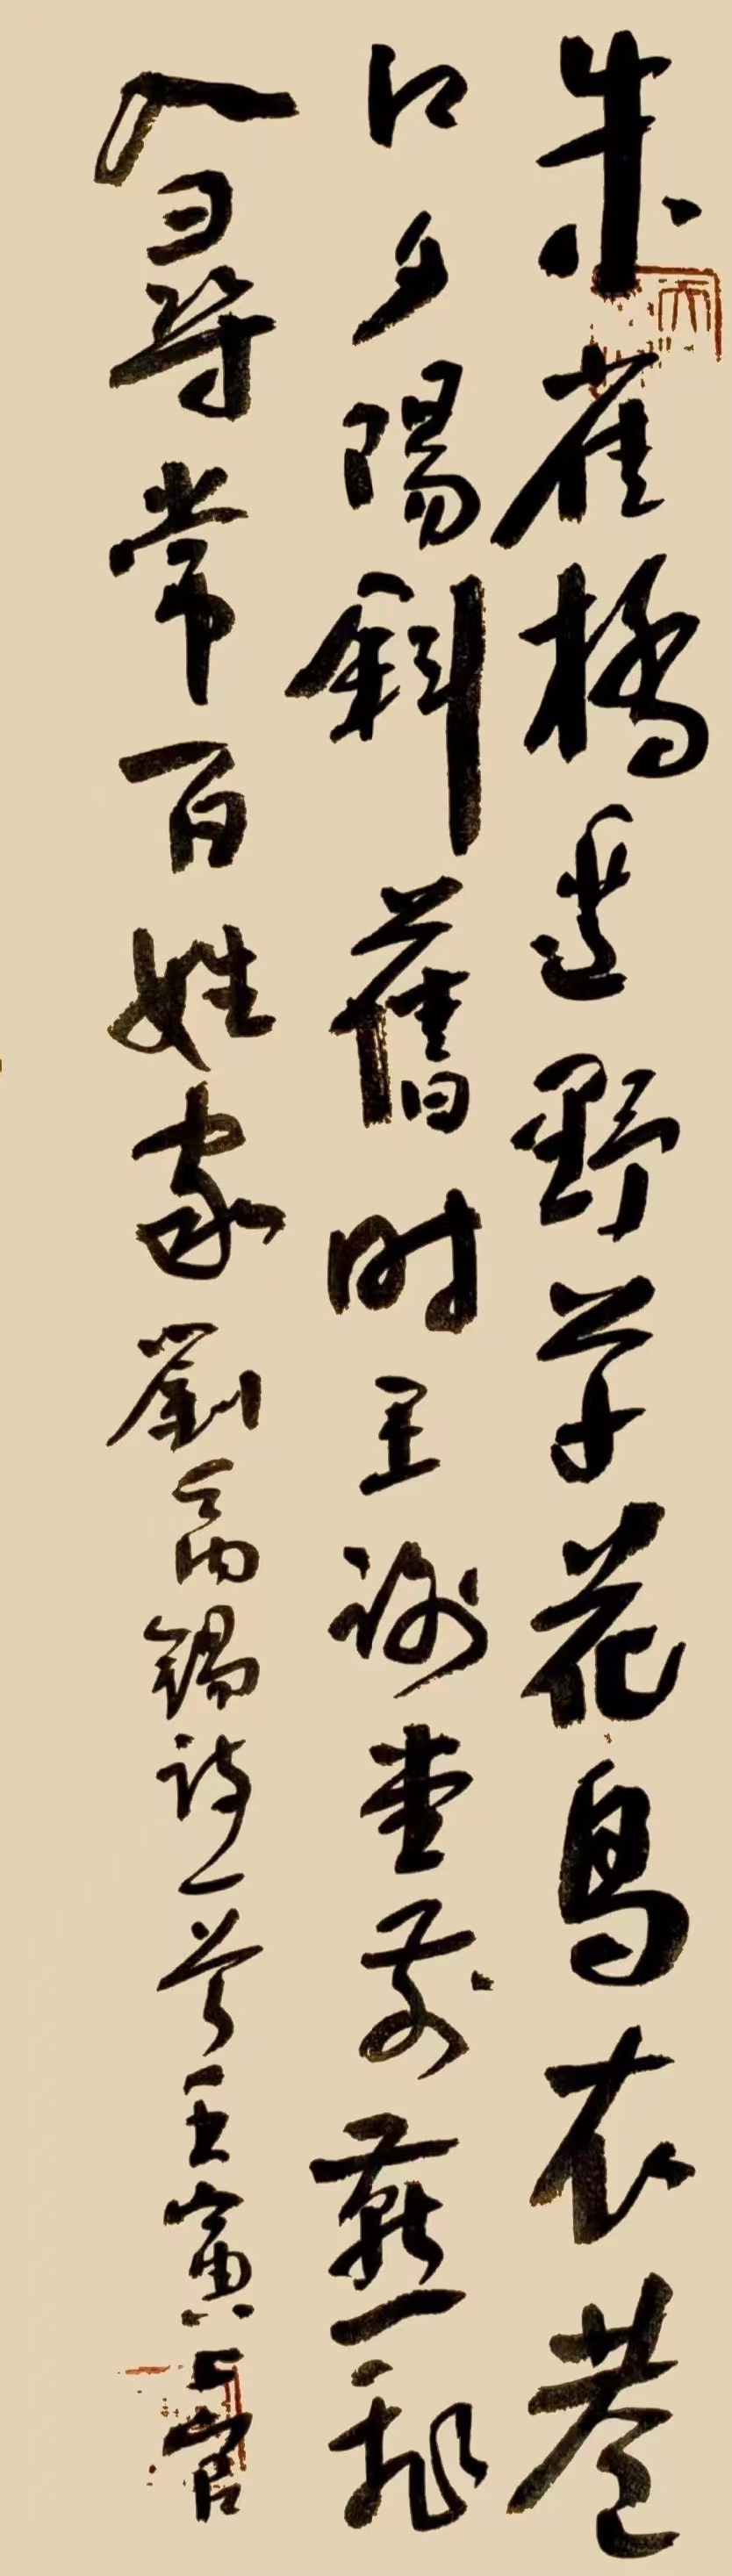 朱雀橋邊野草花烏衣巷
口夕陽斜舊时王謝堂前燕飛
入尋常百姓家劉禹錫詩一首壬寅上官